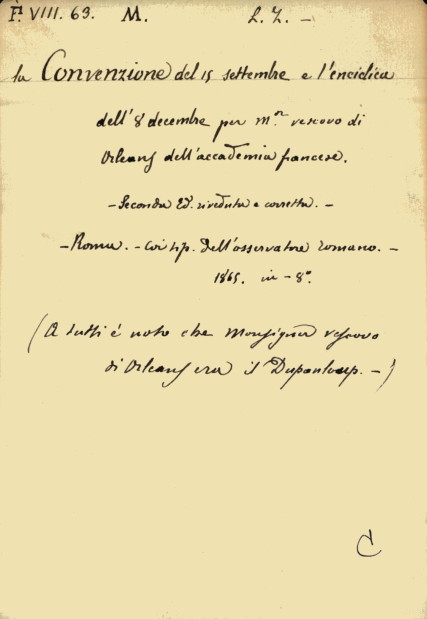 F. VIII. 63. M. L. Z. -
la Convenzione del 15 settembre e l'enciclica
dell' 8 decembre per m.or vescovo di
Orleans dell'accademia francese.
- Seconda Ed. riveduta e corretta. -
- Roma. - coi tip. dell'osservatore romano. -
1865. in - 8°.
(A tutti é noto che Monsignor vescovo
di Orleans era il Dupanloup. -)
C